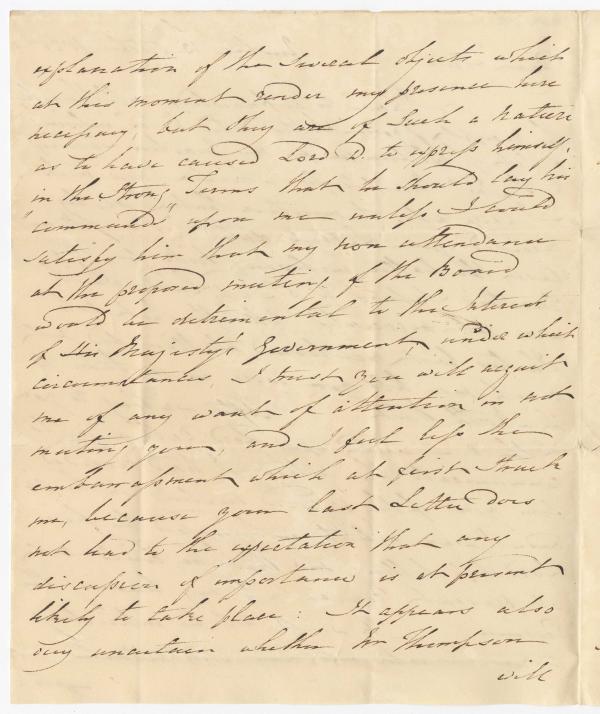 explanation of the Several objects which
at this moment render my presence here
necessary, but they are of such a nature
as to have caused Lord D. to express himself,
in the Strong Terms that he should lay his
"command" upon me unless I could
satisfy him that my non attendance
at the proposed meeting of the Board
would be detrimental to the Interest
of His Majesty's Government, under which
circumstances, I trust you will acquit
me of any want of attention in not
meeting you, and I feel less the
embarrassment which at first struck
me, because your last Letter does
not lead to the expectation that any
discussion of importance is at present
likely to take place: It appears also
very uncertain whether Mr Thompson
will